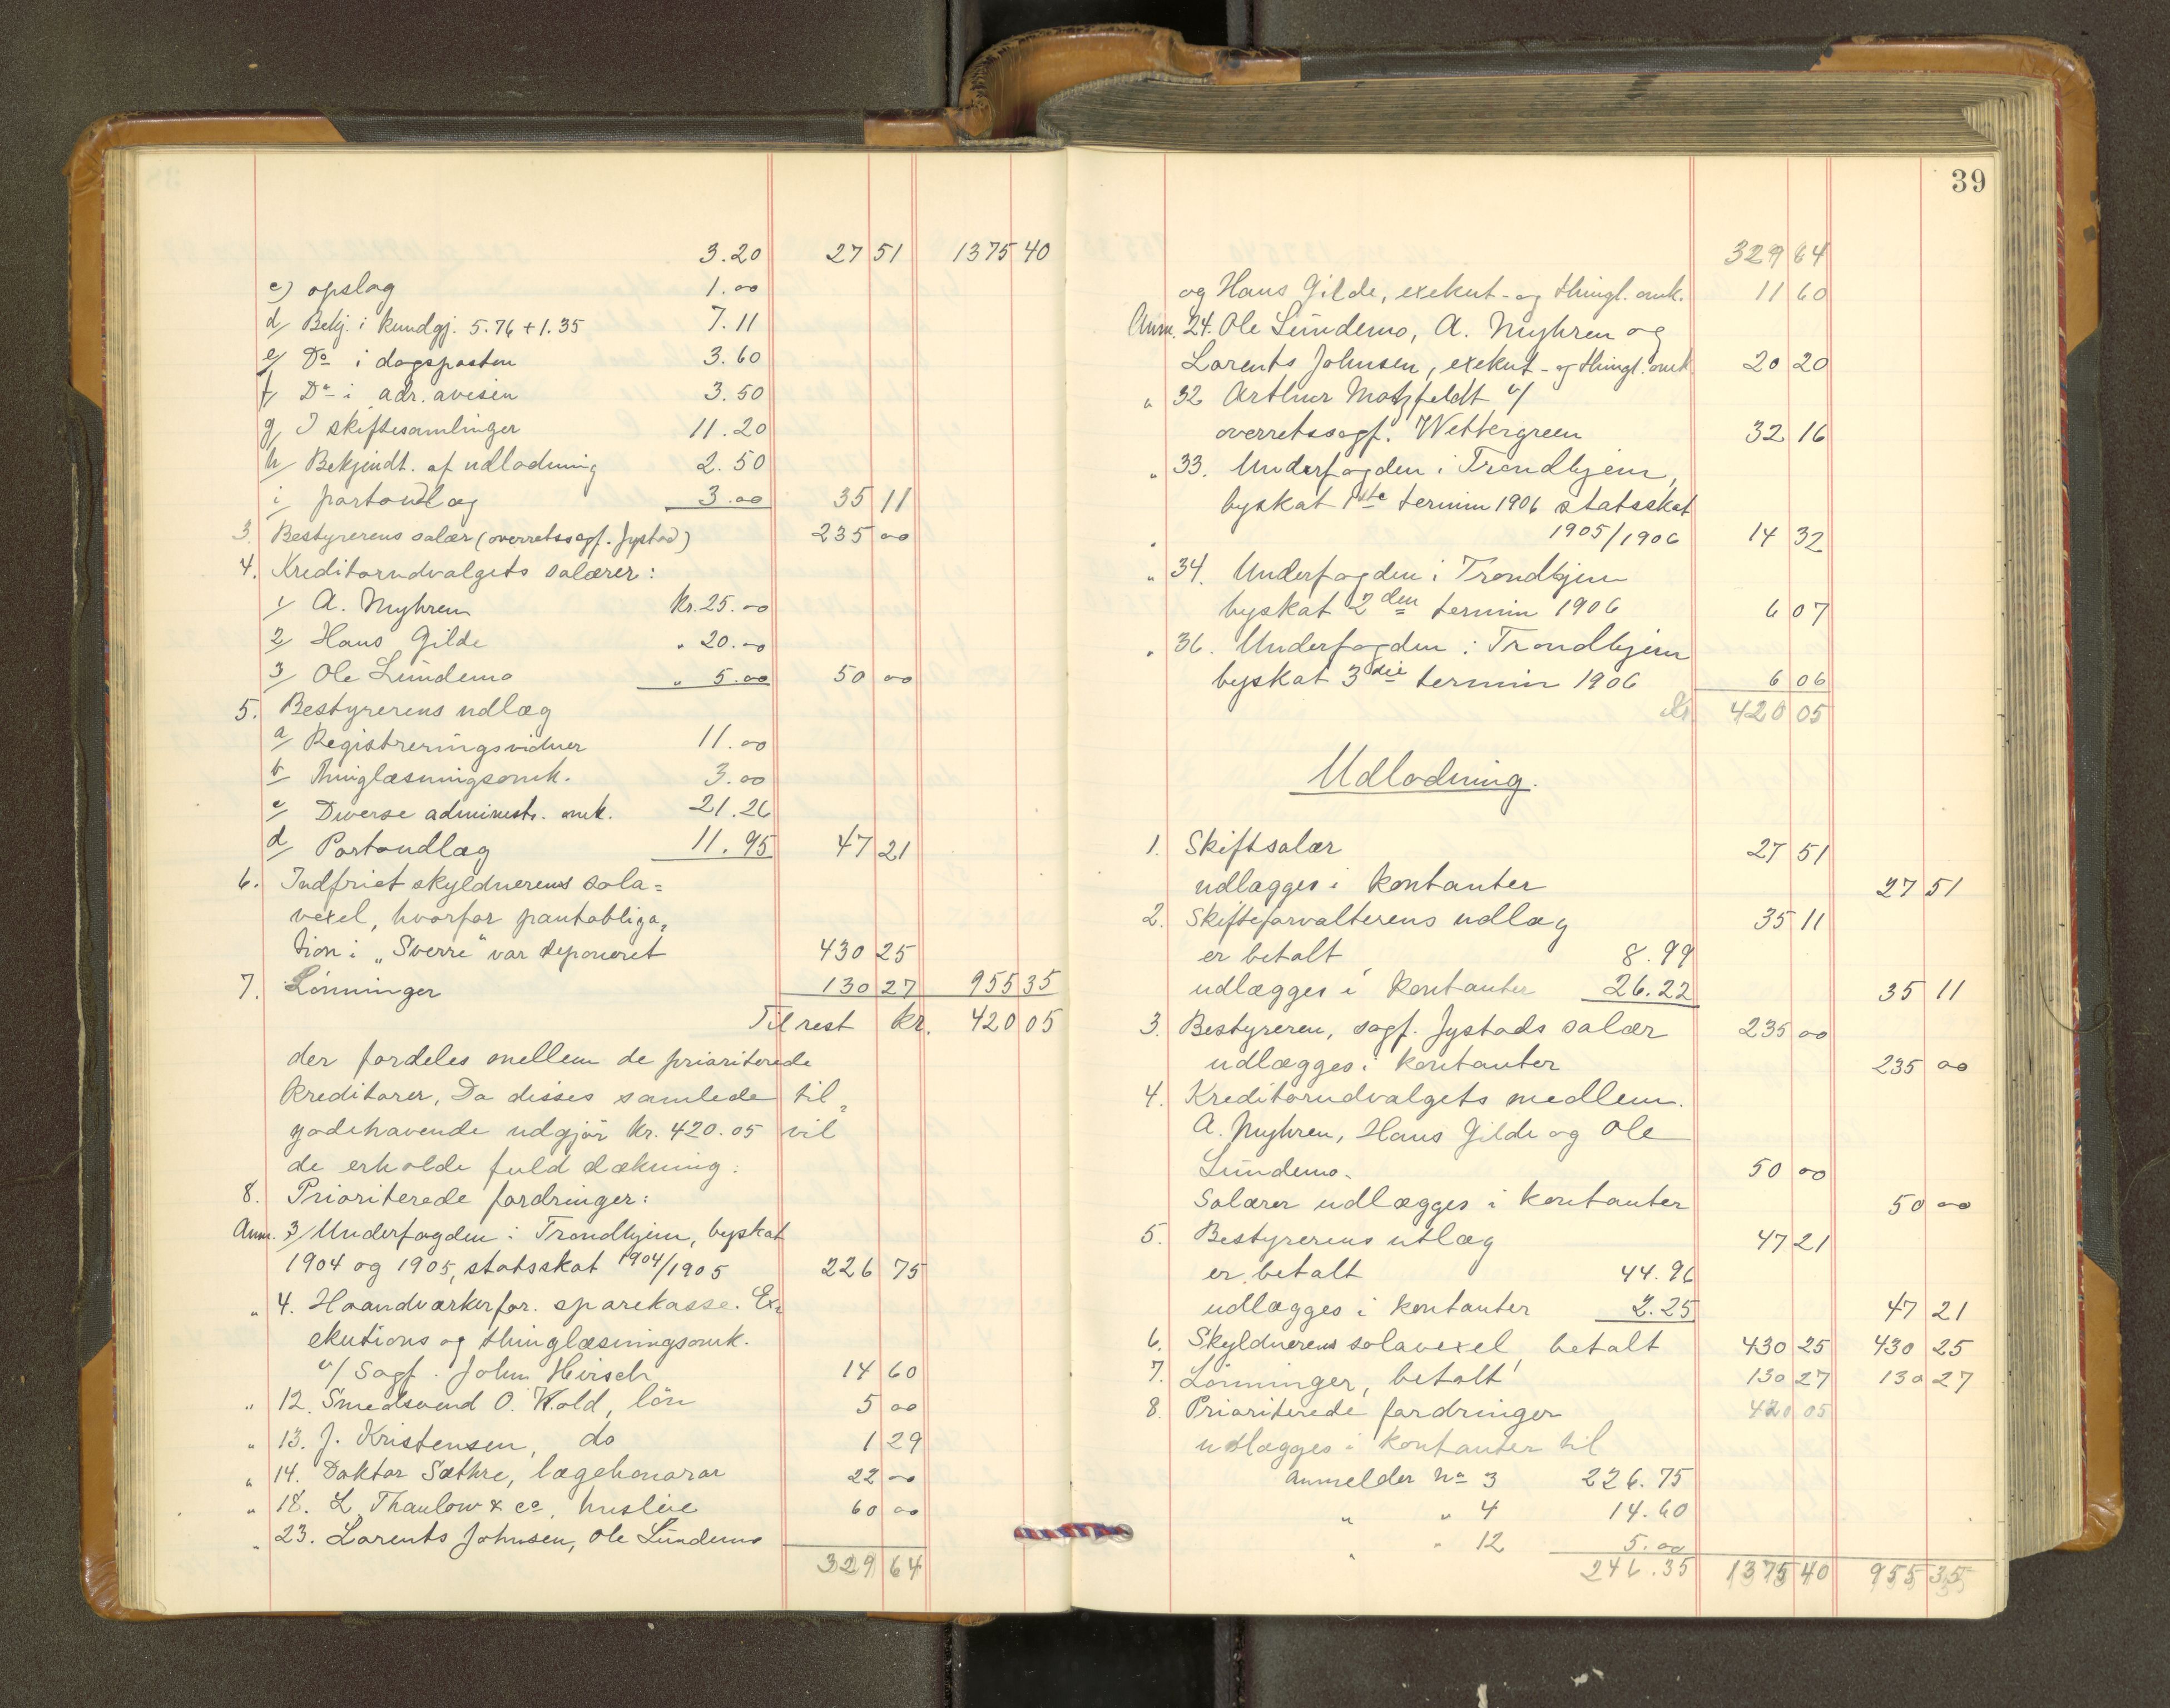 3.20 27 51 1375 40
c) opslag 1.00
d/ Bekj. i kundgj. 5.76 + 1.35 7.11
e/ Do i dagsposten 3.60
f/ Do i adr. avisen 3.50
g/ I skiftesamlinger 11.20
h/ Bekjendt. af udlodning 2.50
i/ portoudlæg 3.00 35 11
3. Bestyrerens salær (overretssagf. Jystad) 235 00
4. Kreditorudvalgets salærer:
1/ A. Myhren Kr. 25.00
2/ Hans Gilde " 20.00
3/ Ole Lundemo " 5.00 50 00
5. Bestyrerens udlæg
a/ Registreringsvidner 11.00
b/ Thinglæsningsomk. 3.00
c/ Diverse administr. omk. 21.26
d/ Portoudlæg 11.95 47 21
6. Indfriet skyldnerens sola=
vexel, hvorfor pantobliga=
tion i "Sverre" var deponeret 430 25
7. Lønninger 130 27 955 35
Til rest kr. 420 05
der fordeles mellem de prioriterede
kreditorer, Da disses samlede til=
godehavende udgjør kr. 420.05 vil
de erholde fuld dækning.
8. Prioriterede fordringer:
Anm. 3/ Underfogden i Trondhjem, byskat
1904 og 1905, statsskat 1904/1905 226 75
" 4. Haandværkerfor. sparekasse. Ex=
ekutions og thinglæsningsomk.
v/ Sagf. John Hirsch 14 60
" 12. Smedsvend O. Wold, løn 5 00
" 13. J. Kristensen, do 1 29
" 14. Doktor Sæthre, lægehonorar 22 00
" 18. L. Thaulow & co, husleie 60 00
" 23. Lorents Johnsen, Ole Lundemo
329 64
39
329 64
og Hans Gilde, exekut- og thingl. omk. 11 60
Anm. 24. Ole Lundemo, A. Myhren og
Lorents Johnsen, exekut- og thingl. omk 20 20
" 32 Arthur Motzfeldt v/
overretssagf. Wettergreen 32 16
" 33. Underfogden i Trondhjem,
byskat 1ste termin 1906 statsskat
1905/1906 14 32
" 34. Underfogden i Trondhjem
byskat 2den termin 1906 6 07
" 36. Underfogden i Trondhjem
byskat 3die termin 1906 6 06
Kr. 420 05
Udlodning.
1. Skiftsalær 27 51
udlægges i kontanter 27 51
2. Skifteforvalterens udlæg 35 11
er betalt 8.99
udlægges i kontanter 26.22 35 11
3. Bestyreren, sagf. Jystads salær 235 00
udlægges i kontanter 235 00
4. Kreditorudvalgets medlem.
A. Myhren, Hans Gilde og Ole
Lundemo. 50 00
Salærer udlægges i kontanter 50 00
5. Bestyrerens utlæg 47 21
er betalt 44.96
udlægges i kontanter 2.25 47 21
6. Skyldnerens solavexel betalt 430 25 430 25
7. Lønninger, betalt 130 27 130 27
8. Prioriterede fordringer 420 05
udlægges i kontanter til
Anmelder No 3 226.75
" " 4 14.60
" " 12 5.00
246.35 1375 40 955 35